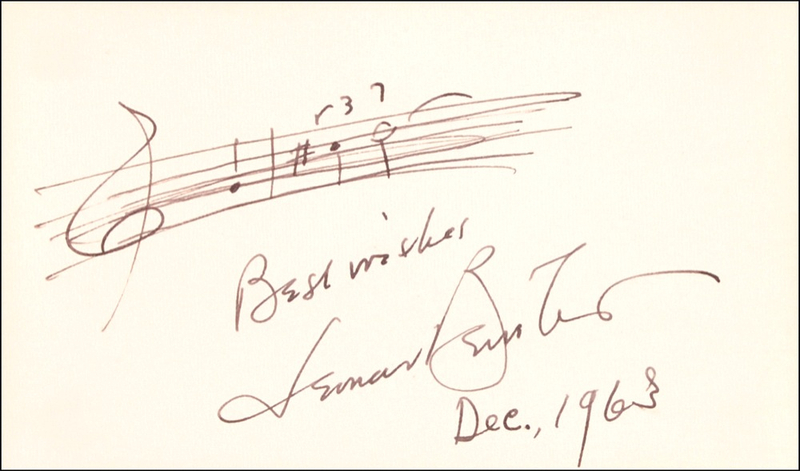 3
Best wishes
Leonard Bernstein
Dec., 1963